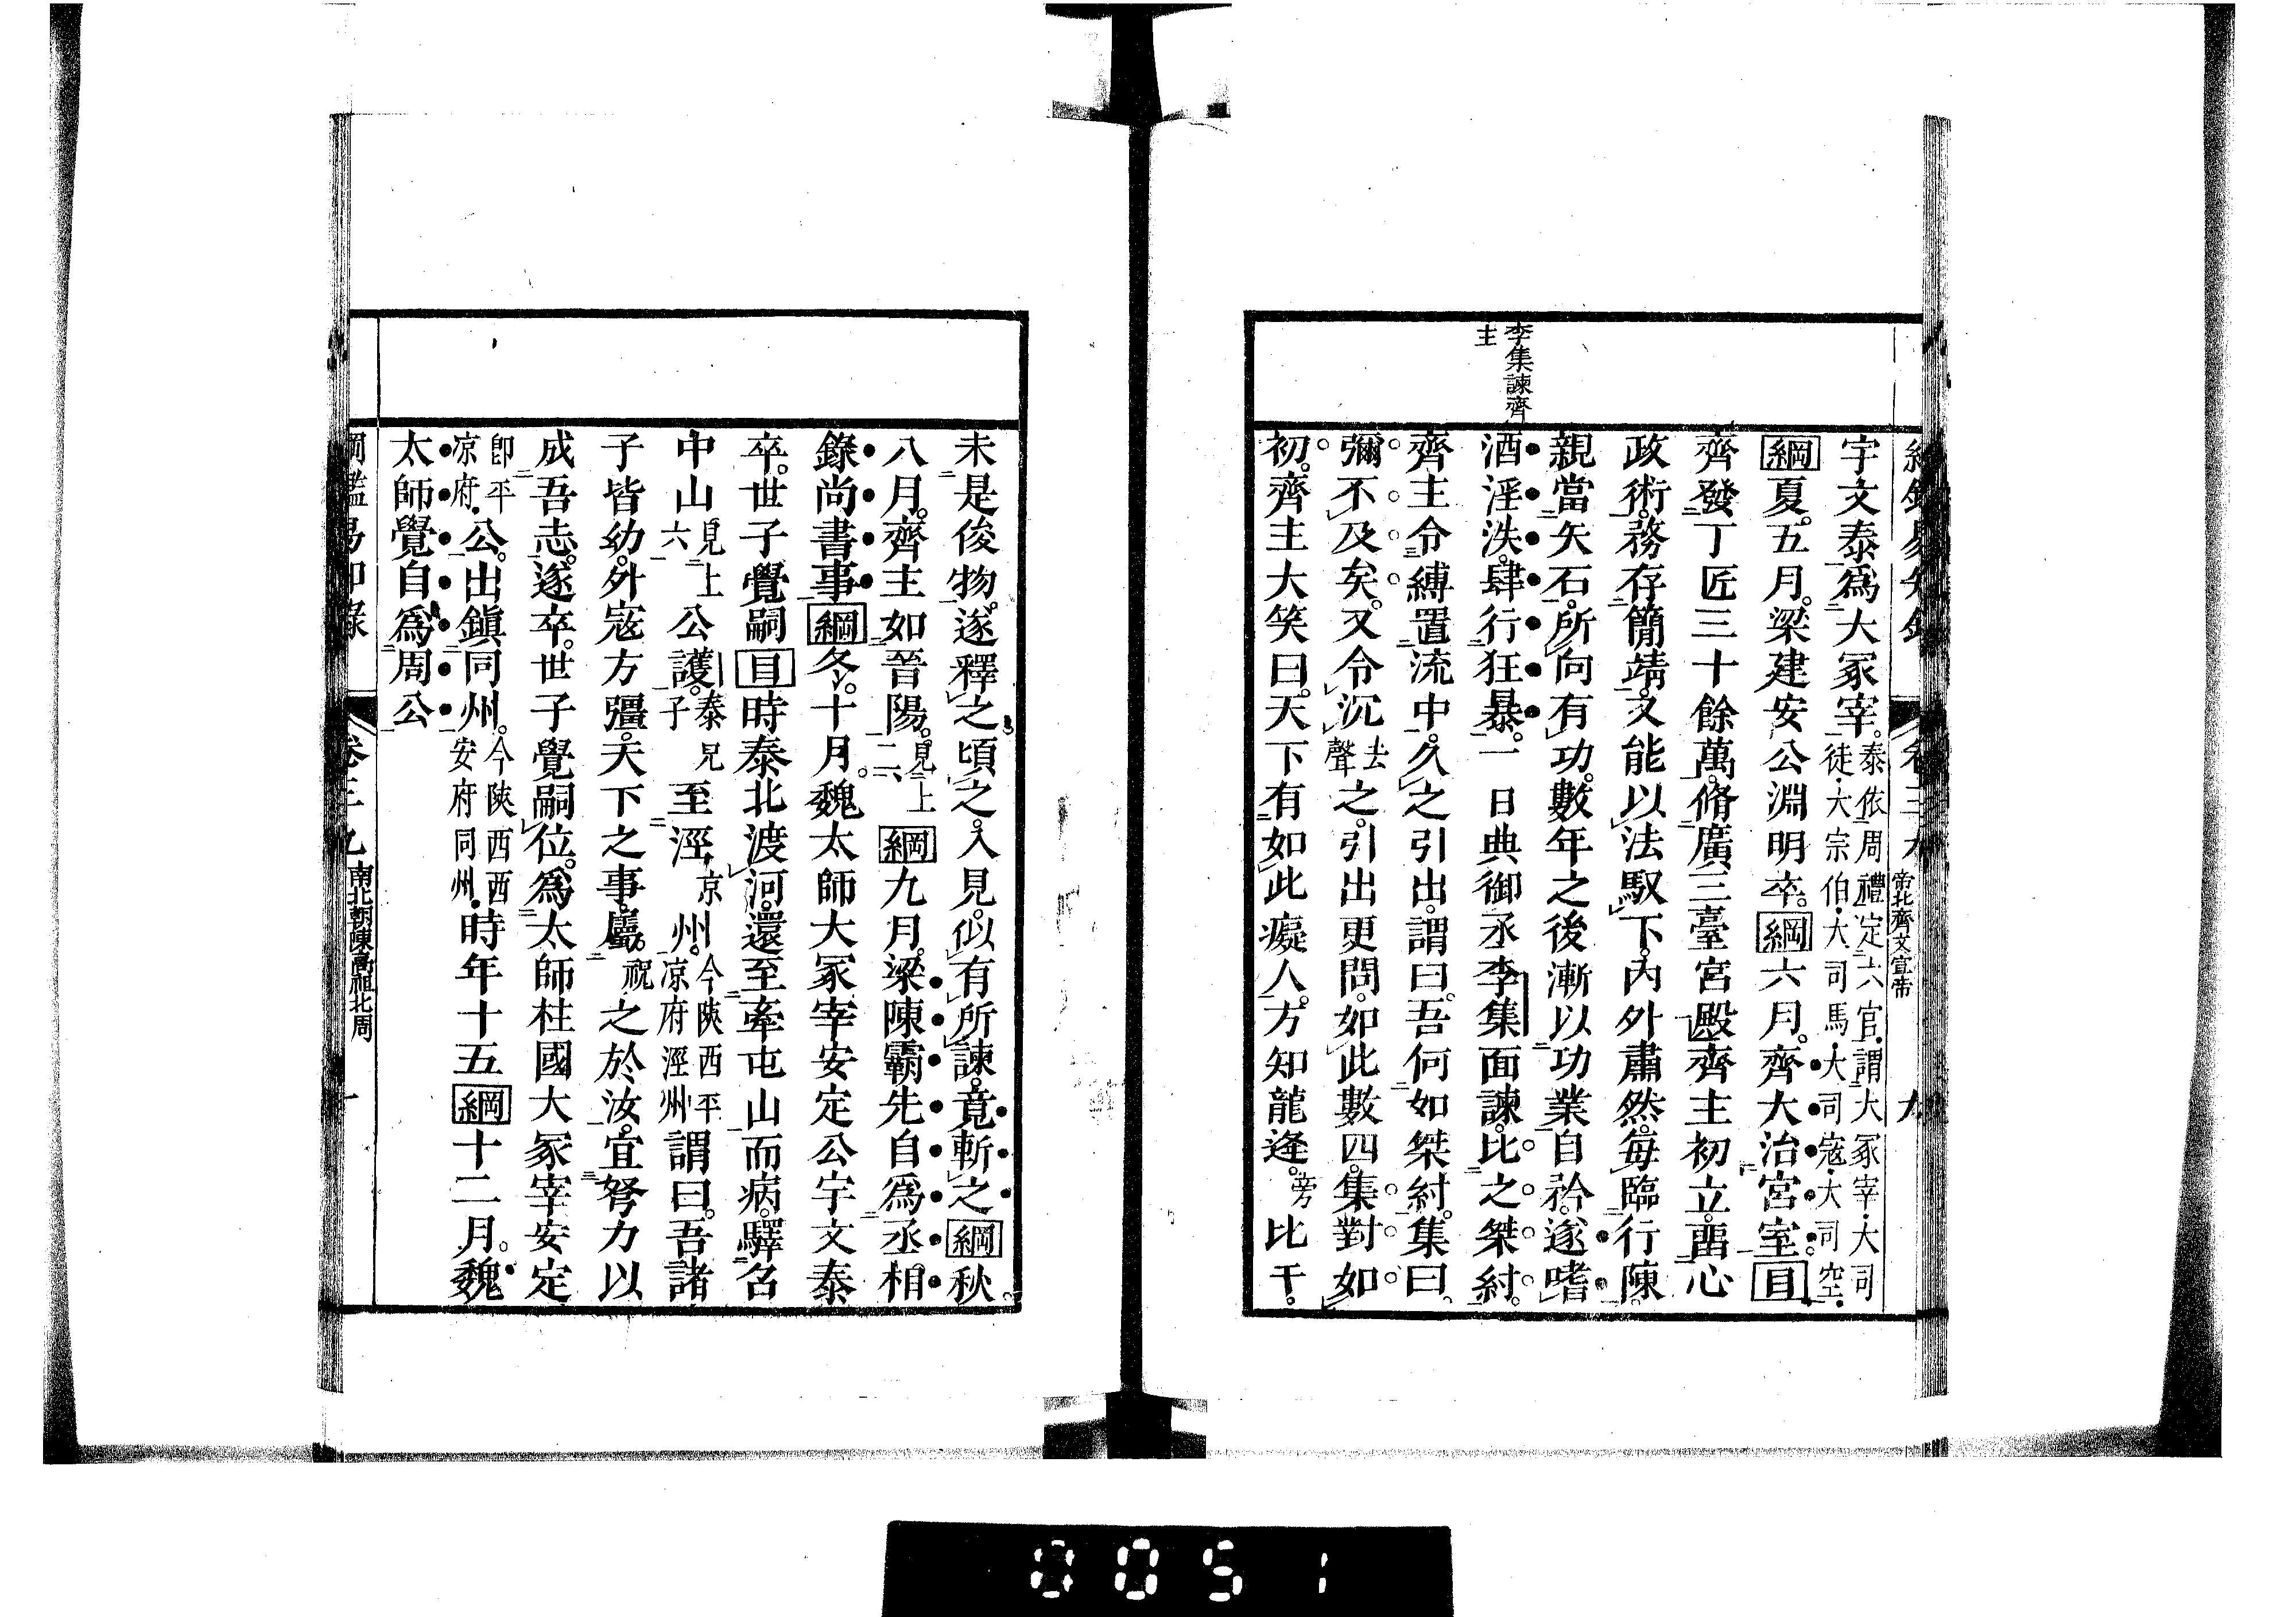 李集諫齊
主
宇文泰爲大冢宰。泰依周禮定六官謂大冢宰大司徒大宗伯大司馬大司寇大司空
綱夏。五月。梁建安公淵明卒。綱六月。齊大治宮室。目
齊發丁匠三十餘萬。脩廣三臺宮殿齊主初立。畱心
政術。務存簡靖。文能以法馭下。內外肅然。每臨行陳。
親當矢石。所向有功。數年之後漸以功業自矜。遂嗜
酒淫泆。肆行狂暴。一日典御丞李集面諫。比之桀紂。
齊主令縛置流中。久之引出。謂曰。吾何如桀紂。集曰。
彌不及矣。又令沉去聲之。引出更問。如此數四。集對如
初。齊主大笑曰。天下有如此癡人。方知龍逄旁比干。
帝北齊文宣帝
未是俊物。遂釋之頃之。入見。似有所諫。竟斬之綱秋
八月。齊主如晉陽。見上二六綱九月。梁陳霸先自爲丞相
錄尚書事綱冬。十月。魏太師大冢宰安定公宇文泰
卒。世子覺嗣目時泰北渡河。還至牽屯山而病。驛名
中山見上六公護。泰兄子至涇京州。今陝西平凉府涇州謂曰。吾諸
子皆幼。外寇方彊。天下之事。屬祝之於汝。宜努力以
成吾志。遂卒。世子覺嗣位。爲太師柱國大冢宰安定
即平凉府公。出鎭同州。今陝西西安府同州時年十五綱十二月。魏
太師覺自爲周公
卷三九 南北朝陳高祖北周